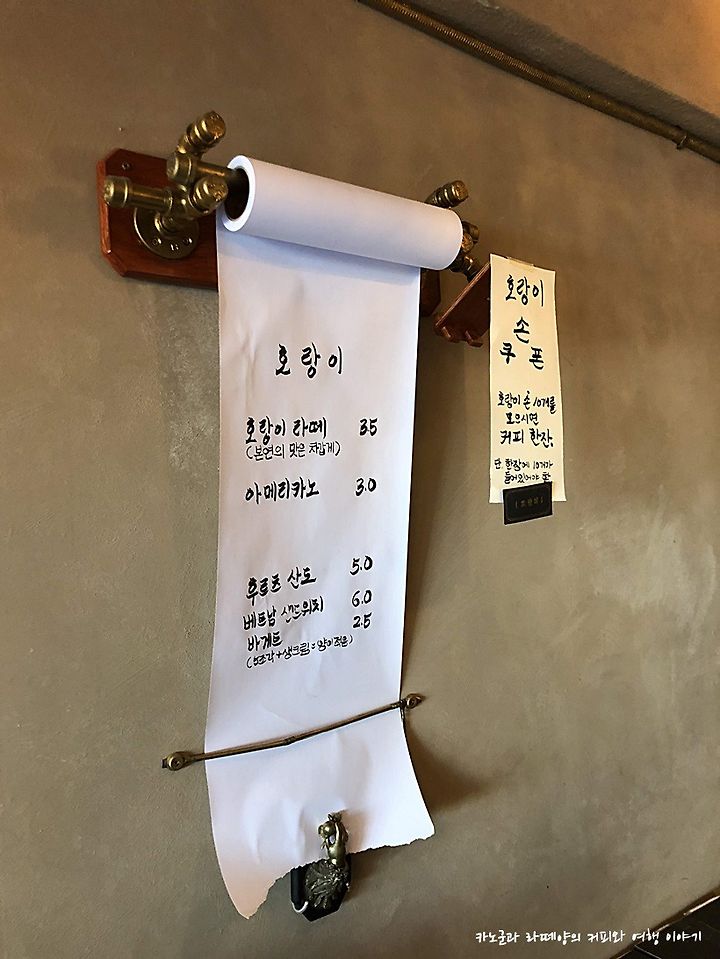 호랑이
호랑이 라떼 3.5
(본연의 맛은 차갑게)
아메리카노 3.0
후르츠 산도 5.0
베트남 샌드위치 6.0
바게트 2.5
(5조각+생크림=양이적은)
호랑이
손
쿠폰
호랑이 손 10개를
모으시면
커피 한잔.
단 한장에 10개가
들어있어야 함
카노군과 라떼양의 커피와 여행 이야기